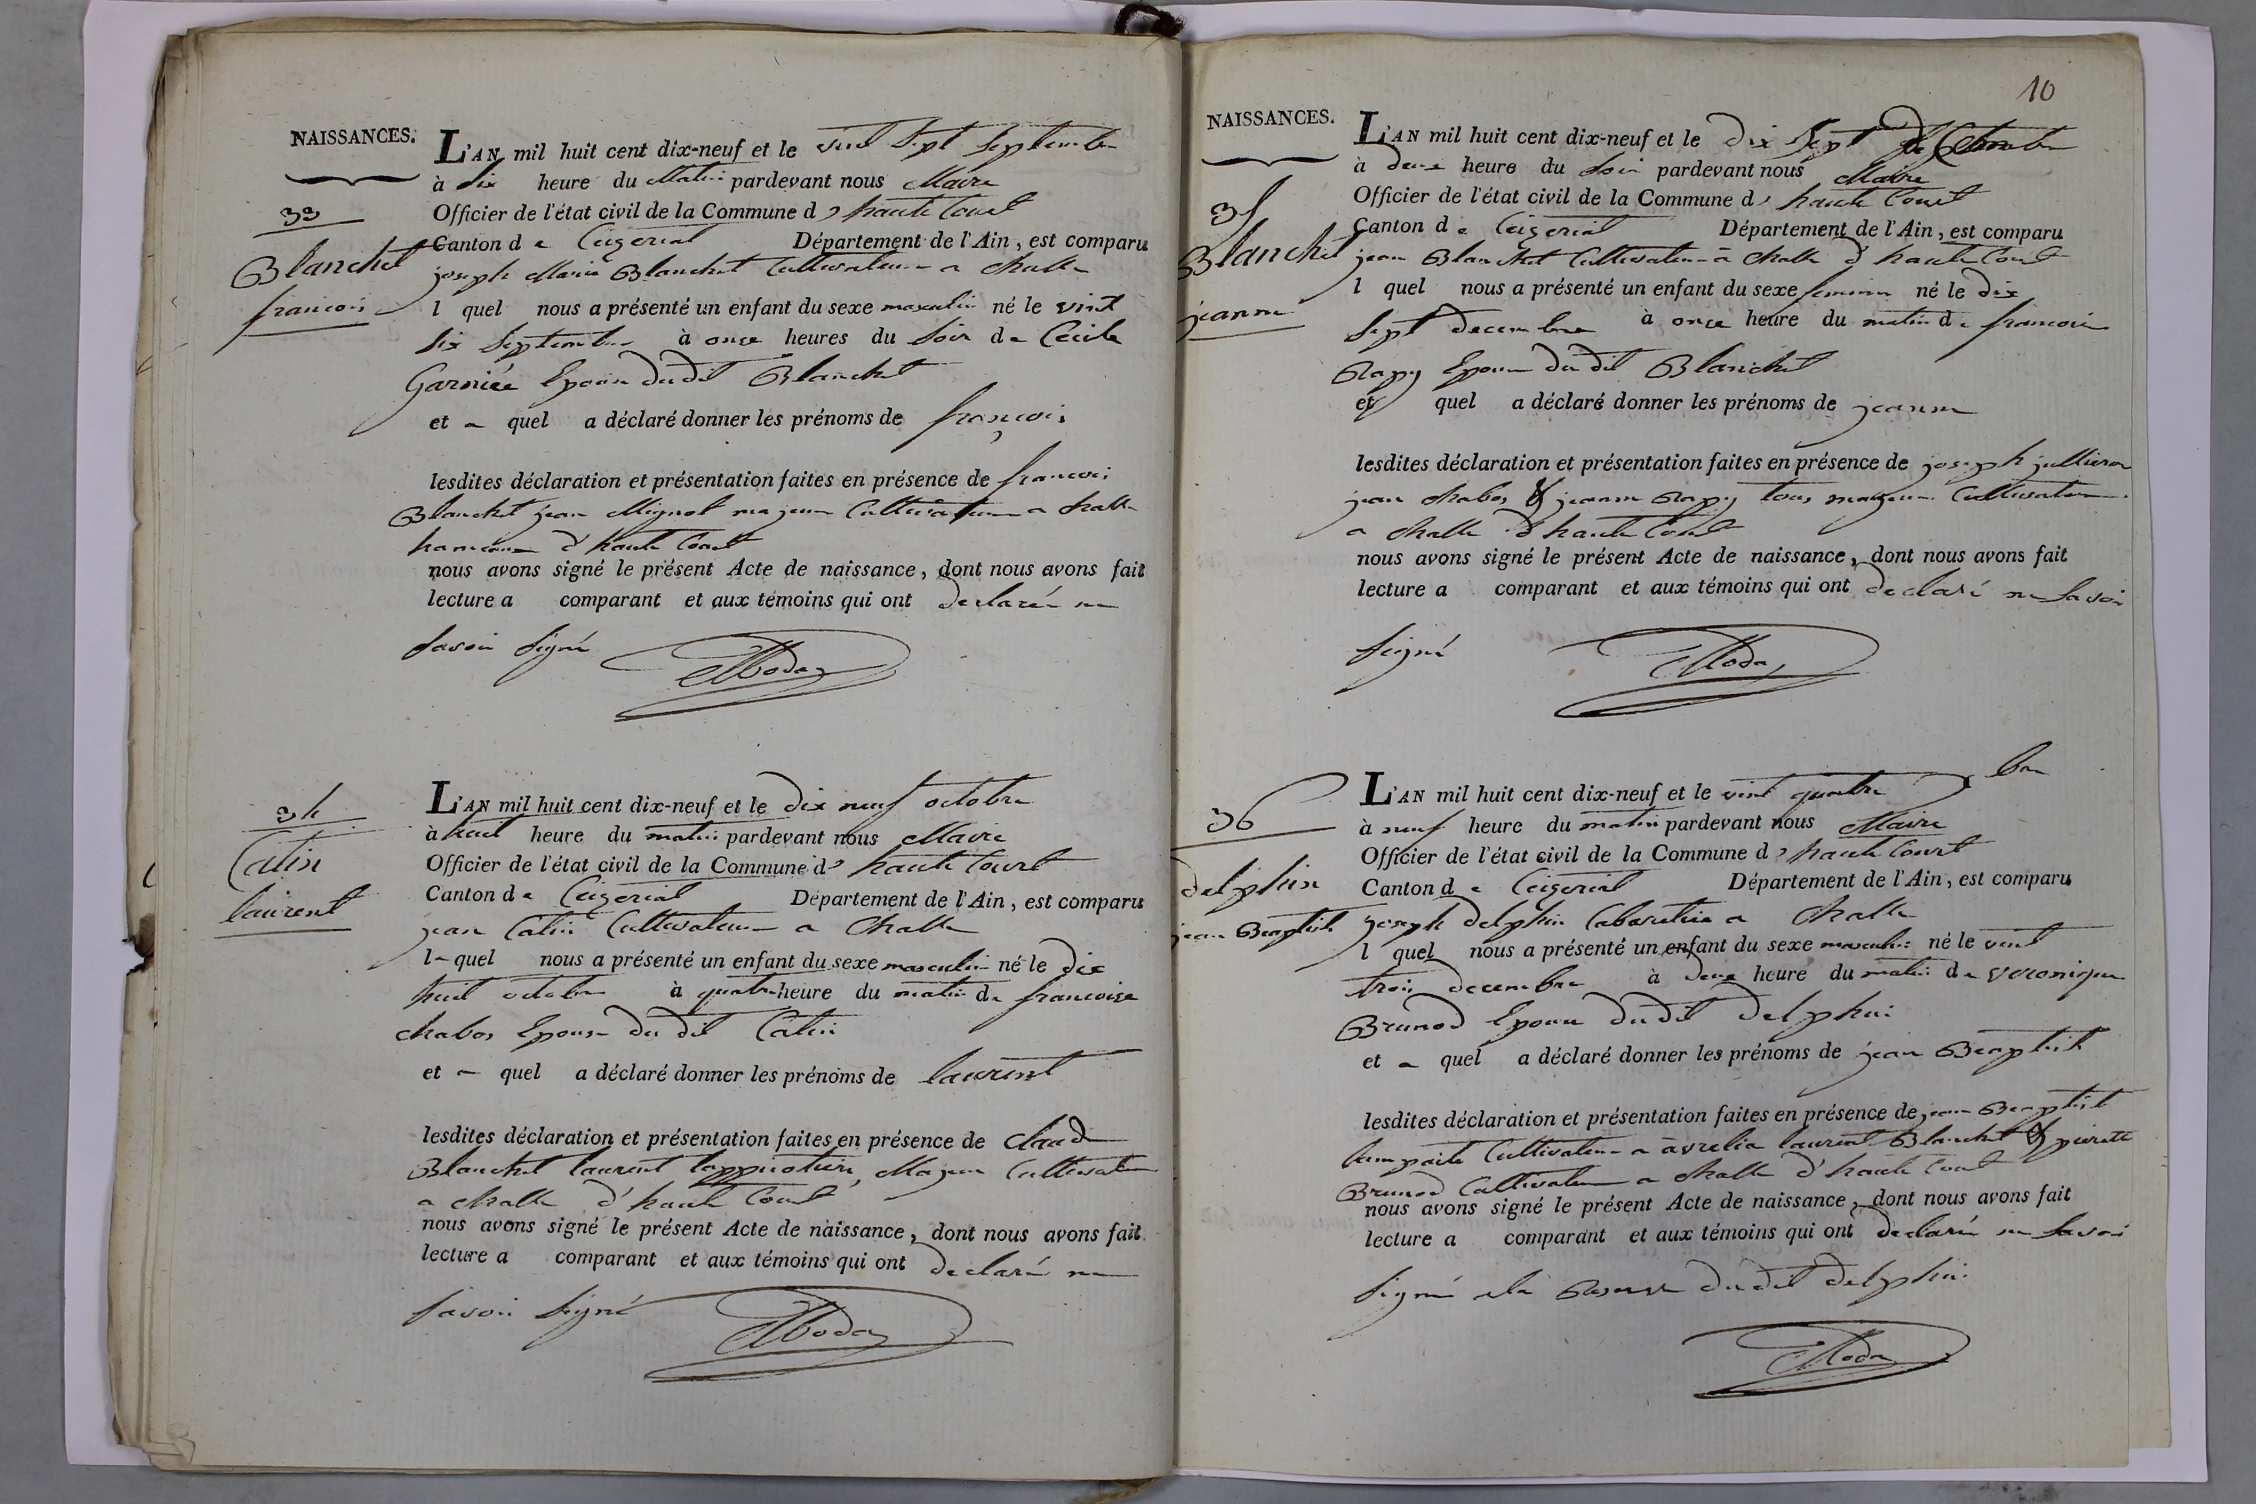 NAISSANCES.
33
Blanchet
francois
L'AN mil huit cent dix-neuf et le vint sept Septembre
à dix heure du Matin pardevant nous Maire
Officier de l'état civil de la Commune d' haute Court
Canton de Ceizeriat Département de l'Ain, est comparu
joseph Marie Blanchet Cultivateur a Challe
l quel nous a présenté un enfant du sexe masculin né le vint
six Septembre à onze heures du soir de Cecile
Garniée Epouse du dit Blanchet
et a quel a déclaré donner les prénoms de françois
lesdites déclaration et présentation faites en présence de francois
Blanchet jean Mignot majeur Cultivateur a Challe
hameau d'haute Court
nous avons signé le présent Acte de naissance, dont nous avons fait
lecture a comparant et aux témoins qui ont declaré ne
savoir signé
34
Catin
laurent
L'AN mil huit cent dix-neuf et le dix neuf octobre
à huit heure du matin pardevant nous Maire
Officier de l'état civil de la Commune d' haute Court
Canton de Ceizeriat Département de l'Ain, est comparu
jean Catin Cultivateur a Challe
le quel nous a présenté un enfant du sexe masculin né le dix
huit octobre à quatre heure du matin de francoise
Chabos Epouse du dit Catin
et a quel a déclaré donner les prénoms de laurent
lesdites déclaration et présentation faites en présence de claude
Blanchet laurent Majeur Cultivateur
a Challe d'haute Court
nous avons signé le présent Acte de naissance, dont nous avons fait
lecture a comparant et aux témoins qui ont declaré ne
savoir signé
10
NAISSANCES.
35
Blanchet
jeanne
L'AN mil huit cent dix-neuf et le dix Sept
à deux heure du soir pardevant nous Maire
Officier de l'état civil de la Commune d' haute Court
Canton de Ceizeriat Département de l'Ain, est comparu
jean Blanchet Cultivateur a Challe d'haute Court
l quel nous a présenté un enfant du sexe feminin né le dix
sept decembre à onze heure du matin de francoise
Rapy Epouse du dit Blanchet
et quel a déclaré donner les prénoms de jeanne
lesdites déclaration et présentation faites en présence de joseph jullieron
jean Chabos & jeanne Rapy tous majeurs Cultivateurs
a Challe d'haute Court
nous avons signé le présent Acte de naissance, dont nous avons fait
lecture a comparant et aux témoins qui ont declaré ne savoir
signé
36
delphin
jean Beaptiste
L'AN mil huit cent dix-neuf et le vint quatre xbre
à neuf heure du matin pardevant nous Maire
Officier de l'état civil de la Commune d' haute Court
Canton de Ceizeriat Département de l'Ain, est comparu
joseph delphin Cabaretier a Challe
l quel nous a présenté un enfant du sexe masculin né le vint
trois decembre à deux heure du matin de veronique
Brunod Epouse du dit delphin
et a quel a déclaré donner les prénoms de jean Beaptiste
lesdites déclaration et présentation faites en présence de jean Beaptiste
Cultivateur a laurent Blanchet & pierette
Brunod Cultivateur a Challe d'haute Court
nous avons signé le présent Acte de naissance, dont nous avons fait
lecture a comparant et aux témoins qui ont declaré ne savoir
signé a la Reserve du dit delphin